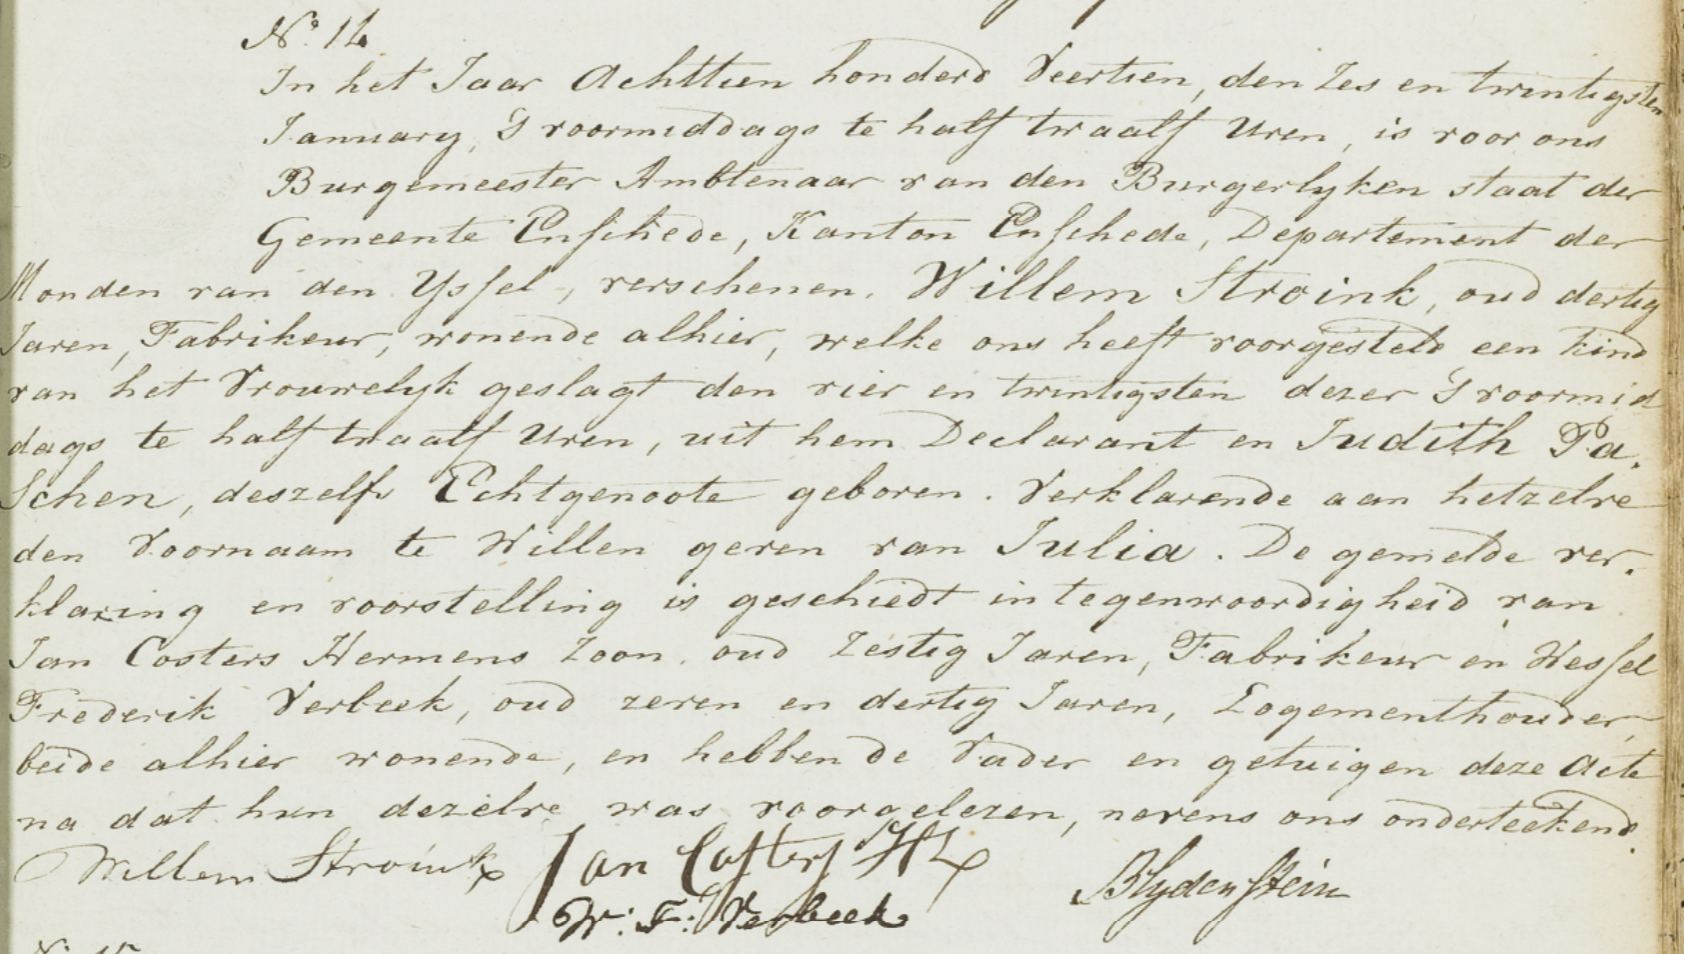 No. 14
In het Jaar Achttien honderd Veertien, den Zes en twintigsten
January, 's voormiddags te half twaalf Uren, is voor ons
Burgemeester Ambtenaar van den Burgerlyken staat der
Gemeente Enschede, Kanton Enschede, Departement der
Monden van den Yssel, verschenen. Willem Stroink, oud dertig
Jaren, Fabrikeur, wonende alhier, welke ons heeft voorgesteld een kind
van het Vrouwelyk geslagt den vier en twintigsten dezer 's voormid
dags te half twaalf Uren, uit hem Declarant en Judith Pa-
schen, deszelfs Echtgenoote geboren. Verklarende aan hetzelve
den Voornaam te Willen geven van Julia. De gemelde ver-
klaring en voorstelling is geschiedt in tegenwoordigheid van
Jan Costers Hermens Zoon, oud Zestig Jaren, Fabrikeur en Wessel
Frederik Verbeek, oud zeven en dertig Jaren, Logementhouder,
beide alhier wonende, en hebben de Vader en getuigen deze Acte
na dat hun dezelve was voorgelezen, nevens ons onderteekend.
Willem Stroink Jan Costers HZ Blydenstein
W: F: Verbeek